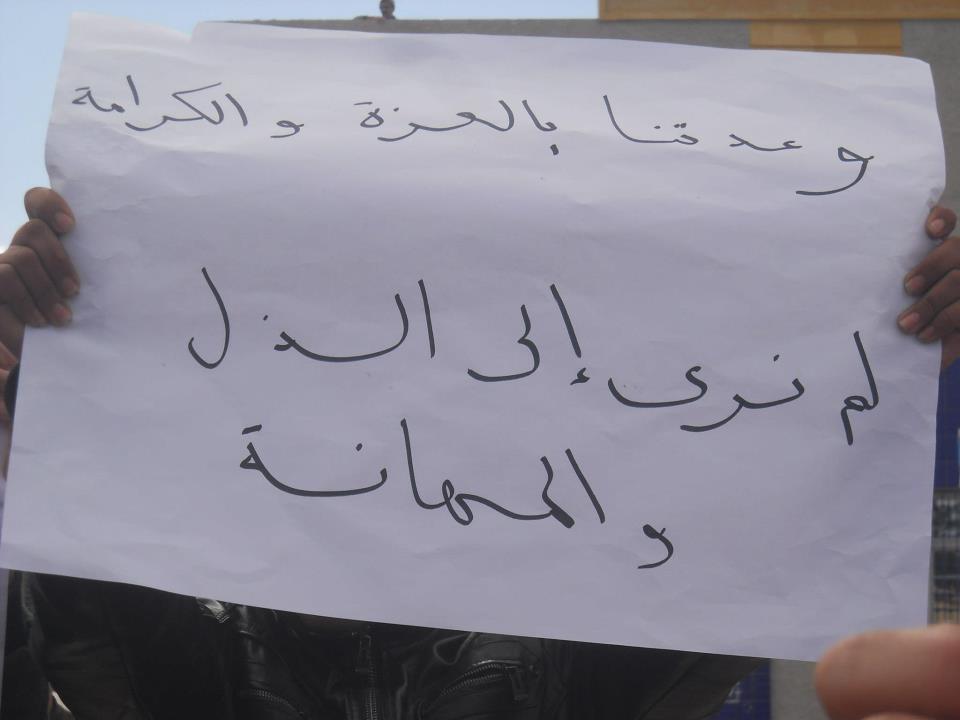 وعدتنا بالعزة و الكرامة
لم نرى إلى الذل
و المهانة